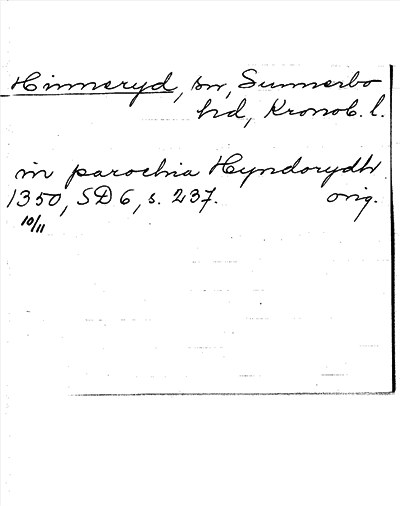 Hinneryd, sn, Sunnerbo
hd, Kronob. l.
in parochia Hyndorydh
1350, SD 6, s. 237. orig.
10/11